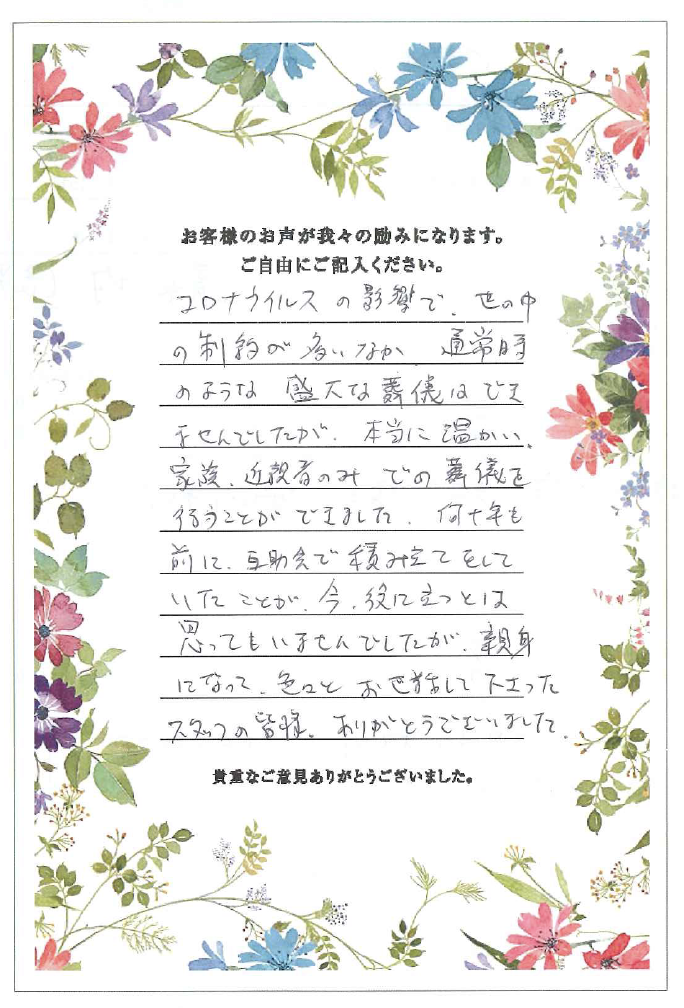 お客様のお声が我々の励みになります。
ご自由にご記入ください。
コロナウイルスの影響で、世の中
の制約が多いなか 通常時
のような 盛大な葬儀はでき
ませんでしたが、本当に温かい、
家族、近親者のみでの葬儀を
行うことができました。何十年も
前に、互助会で積み立てをして
いたことが、今、役に立つとは
思ってもいませんでしたが、親身
になって、色々とお世話して下さった
スタッフの皆様。ありがとうございました。
貴重なご意見ありがとうございました。